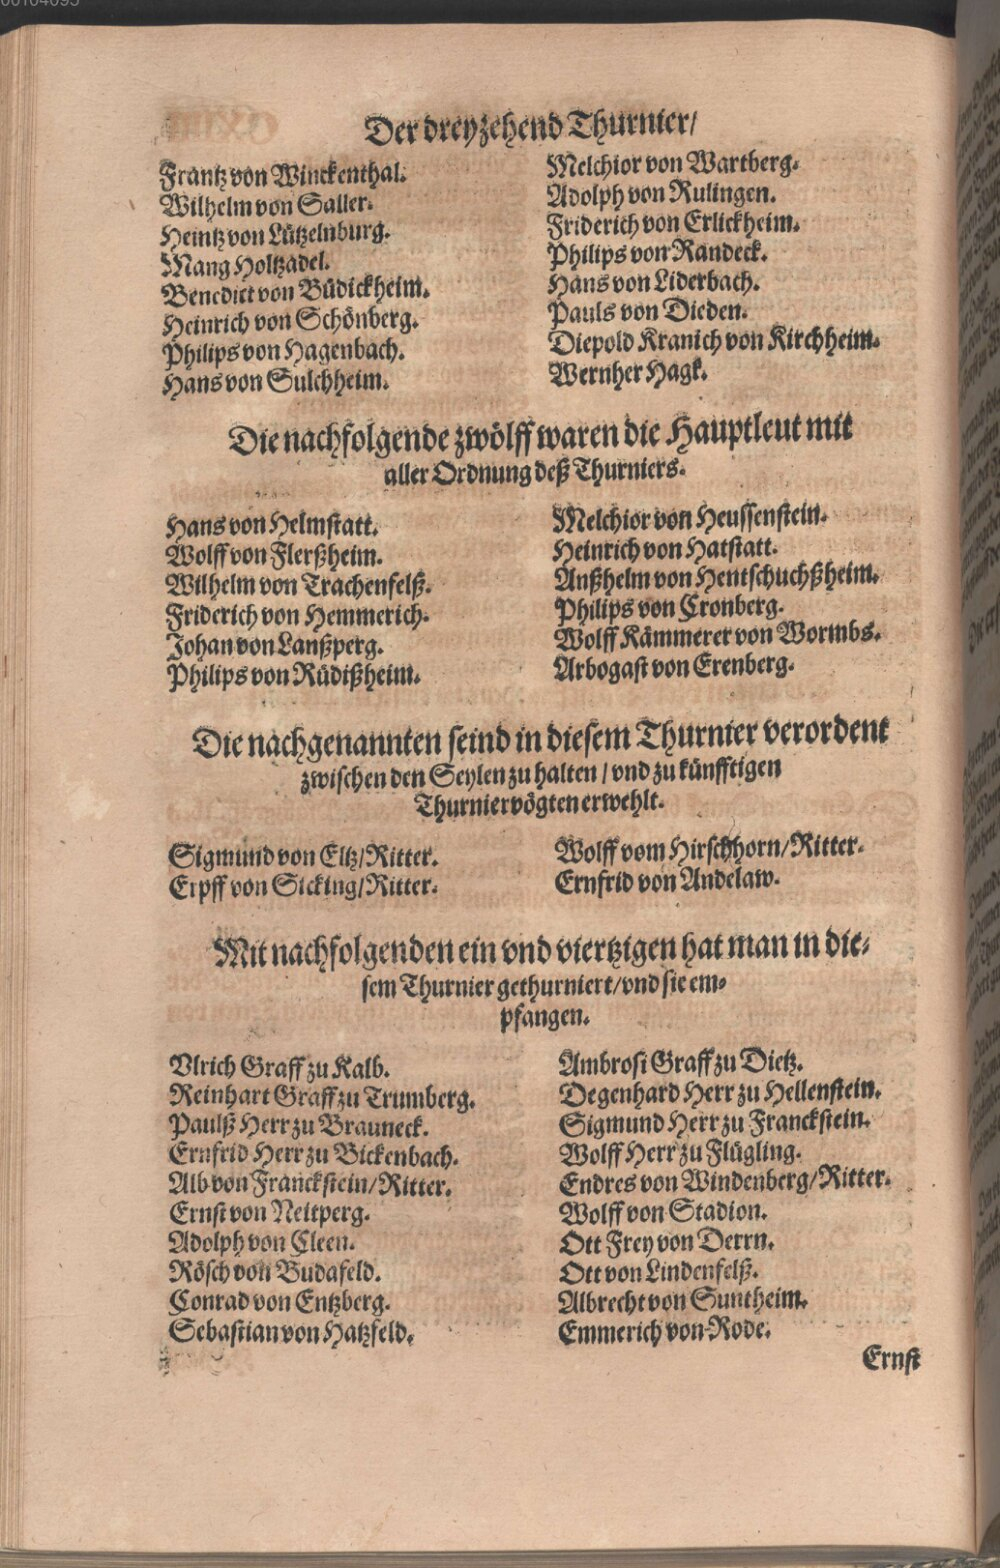 Der dreyzehend Thurnier/
Frantz von Winckenthal.
Wilhelm von Saller.
Heintz von Lützelnburg.
Mang Holtzadel.
Benedict von Büdickheim.
Heinrich von Schönberg.
Philips von Hagenbach.
Hans von Sulchheim.
Melchior von Wartberg.
Adolph von Rulingen.
Friderich von Erlickheim.
Philips von Randeck.
Hans von Liderbach.
Pauls von Dieden.
Diepold Kranich von Kirchheim.
Wernher Hagk.
Die nachfolgende zwölff waren die Hauptleut mit
aller Ordnung deß Thurniers.
Hans von Helmstatt.
Wolff von Flerßheim.
Wilhelm von Trachenfelß.
Friderich von Hemmerich.
Johan von Lanßperg.
Philips von Rüdißheim.
Melchior von Heussenstein.
Heinrich von Hatstatt.
Anßhelm von Hentschuchßheim.
Philips von Cronberg.
Wolff Kämmerer von Wormbs.
Arbogast von Erenberg.
Die nachgenannten seind in diesem Thurnier verordent
zwischen den Seylen zu halten / vnd zu künfftigen
Thurniervögten erwehlt.
Sigmund von Eltz/Ritter.
Erpff von Sicking/Ritter.
Wolff vom Hirschhorn/Ritter.
Ernfrid von Andelaw.
Mit nachfolgenden ein vnd viertzigen hat man in die-
sem Thurnier gethurniert/vnd sie em-
pfangen.
Vlrich Graff zu Kalb.
Reinhart Graff zu Trumberg.
Paulß Herr zu Brauneck.
Ernfrid Herr zu Bickenbach.
Alb von Franckstein/Ritter.
Ernst von Neitperg.
Adolph von Cleen.
Rösch von Budafeld.
Conrad von Entzberg.
Sebastian von Hatzfeld.
Ambrosi Graff zu Dietz.
Degenhard Herr zu Hellenstein.
Sigmund Herr zu Franckstein.
Wolff Herr zu Flügling.
Endres von Windenberg/Ritter.
Wolff von Stadion.
Ott Frey von Derrn.
Ott von Lindenfelß.
Albrecht von Suntheim.
Emmerich von Rode.
Ernst